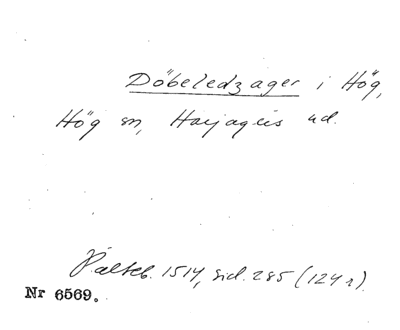 Döbeledzager i Hög,
Hög sn, Harjagers hd.
Pälteb. 1514, sid. 285 (124 r).
Nr 6569.